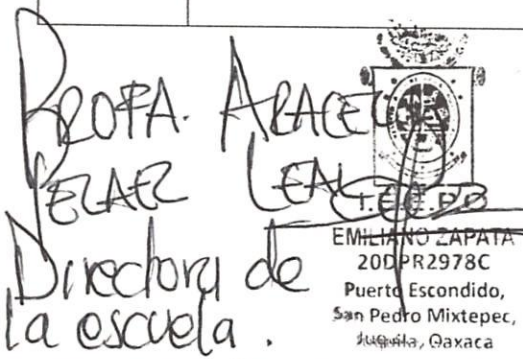 PROFA. ARACELI
PELAEZ LEAL
Directora de
la escuela.
I.E.E.P.O
EMILIANO ZAPATA
20DPR2978C
Puerto Escondido,
San Pedro Mixtepec,
Juquila, Oaxaca